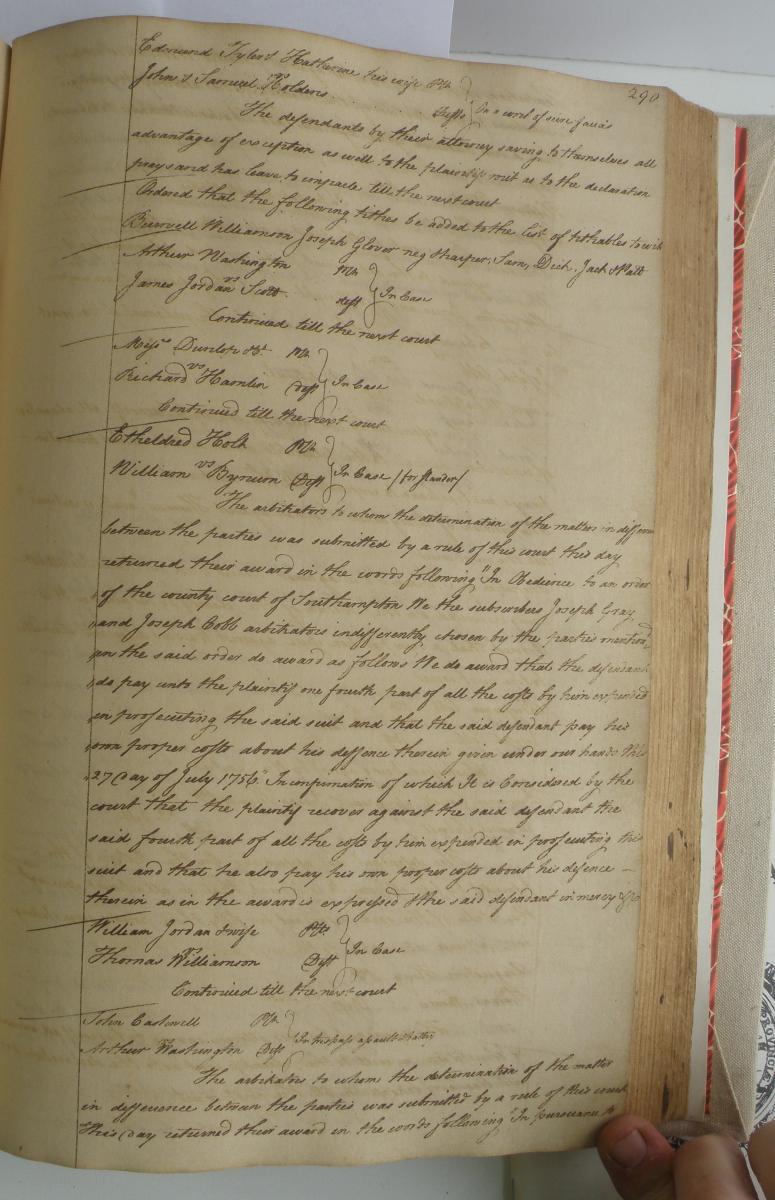 290
Edmund Tyler & Katherine his wife Plts
vs
John & Samuel Holdens Defts } On a writ of scire facias
The defendants by their attorney saving to themselves all
advantage of exception as well to the plaintifs writ as to the declaration
prays and has leave to imparle till the next court
Ordered that the following tithes be added to the list of tithables to wit
Burwell Williamson Joseph Glover neg Harper, Sam, Dick, Jack & Matt
Arthur Washington Plt
vs
James Jordan Scott deft } In Case
Continued till the next court
Mess.rs Dunlop &c. Plt
vs
Richard Hamlin Deft } In Case
Continued till the next court
Etheldred Holt Plt
vs
William Bynum Deft } In Case / for slander /
The arbitrators to whom the determination of the matter in differen
between the parties was submitted by a rule of this court this day
returned their award in the words following "In Obedience to an order
of the county court of Southampton We the subscribers Joseph Gray
and Joseph Cobb arbitrators indifferently chosen by the parties mention'd
in the said order do award as follows We do award that the defendant
do pay unto the plaintif one fourth part of all the costs by him expended
in prosecuting the said suit and that the said defendant pay his
own proper costs about his deffence therein given under our hands this
27 Day of July 1756" In confirmation of which It is Considered by the
court that the plaintif recover against the said defendant the
said fourth part of all the costs by him expended in prosecuting this
suit and that he also pay his own proper costs about his defence
therein as in the award is expressed & the said defendant in mercy &c
William Jordan & wife Plts
vs
Thomas Williamson Deft } In Case
Continued till the next court
John Caswell Plt
vs
Arthur Washington Deft } In trespass assault & battery
The arbitrators to whom the determination of the matter
in difference between the parties was submitted by a rule of this court
This Day returned their award in the words following "In pursuance to